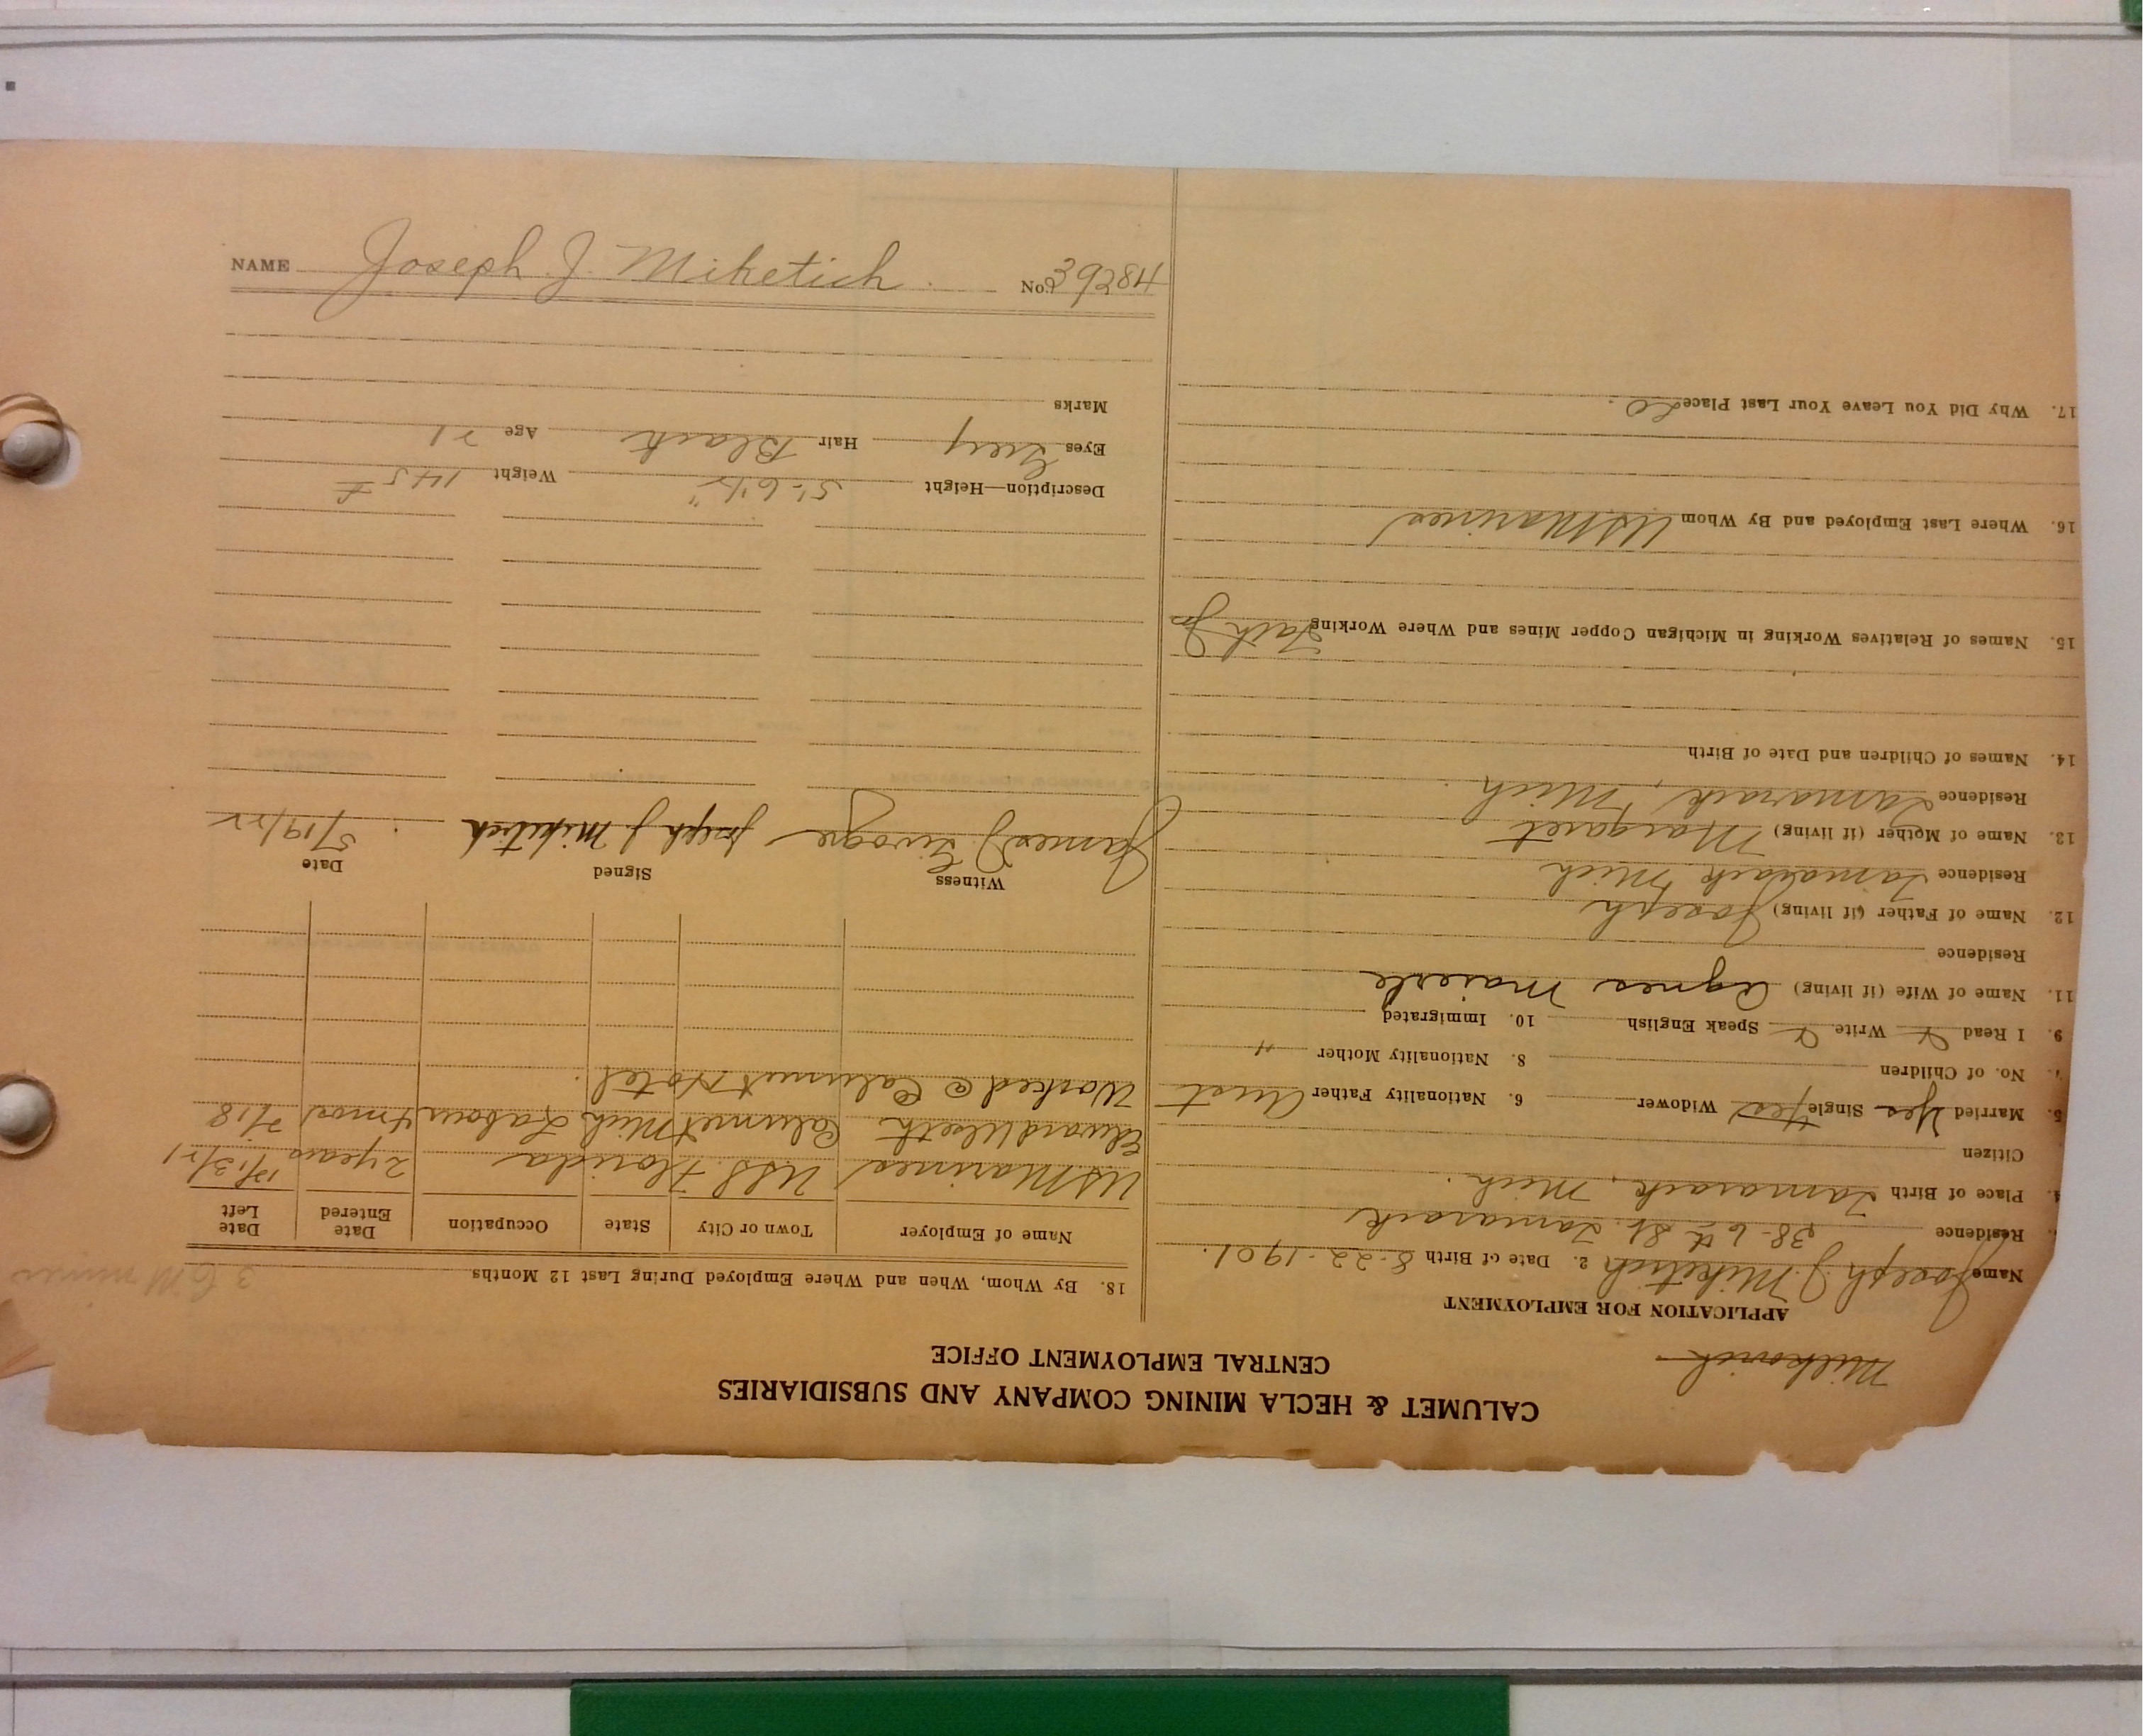 CALUMET & HECLA MINING COMPANY AND SUBSIDIARIES
CENTRAL EMPLOYMENT OFFICE
Milkovich
APPLICATION FOR EMPLOYMENT
Name Joseph J. Miketich 2. Date of Birth 8-22-1901.
Residence 38-6th St. Tamarack
4. Place of Birth Tamarack, Mich.
Citizen
5. Married Yes Single Yes Widower 6. Nationality Father Aust
7. No. of Children 8. Nationality Mother "
9. I Read Y Write Y Speak English 10. Immigrated
11. Name of Wife (if living) Agnes Maierle
Residence
12. Name of Father (if living) Joseph
Residence Tamarack Mich
13. Name of Mother (if living) Margaret
Residence Tamarack, Mich
14. Names of Children and Date of Birth
15. Names of Relatives Working in Michigan Copper Mines and Where Working Fath Jos
16. Where Last Employed and By Whom US Marines
17. Why Did You Leave Your Last Place
18. By Whom, When and Where Employed During Last 12 Months
Name of Employer Town or City State Occupation Date Entered Date Left
US Marines USS. Florida 2 years 12/13/21
Edward Ulseth Calumet Mich Labour 4 mos 7/18
Worked @ Calumet Hotel.
Witness Signed Date
James J. Joseph J Miketich 5/19/22
Description—Height 5'-6 1/2" Weight 145 #
Eyes Grey Hair Black Age 21
Marks
NAME Joseph J. Miketich No. 39284